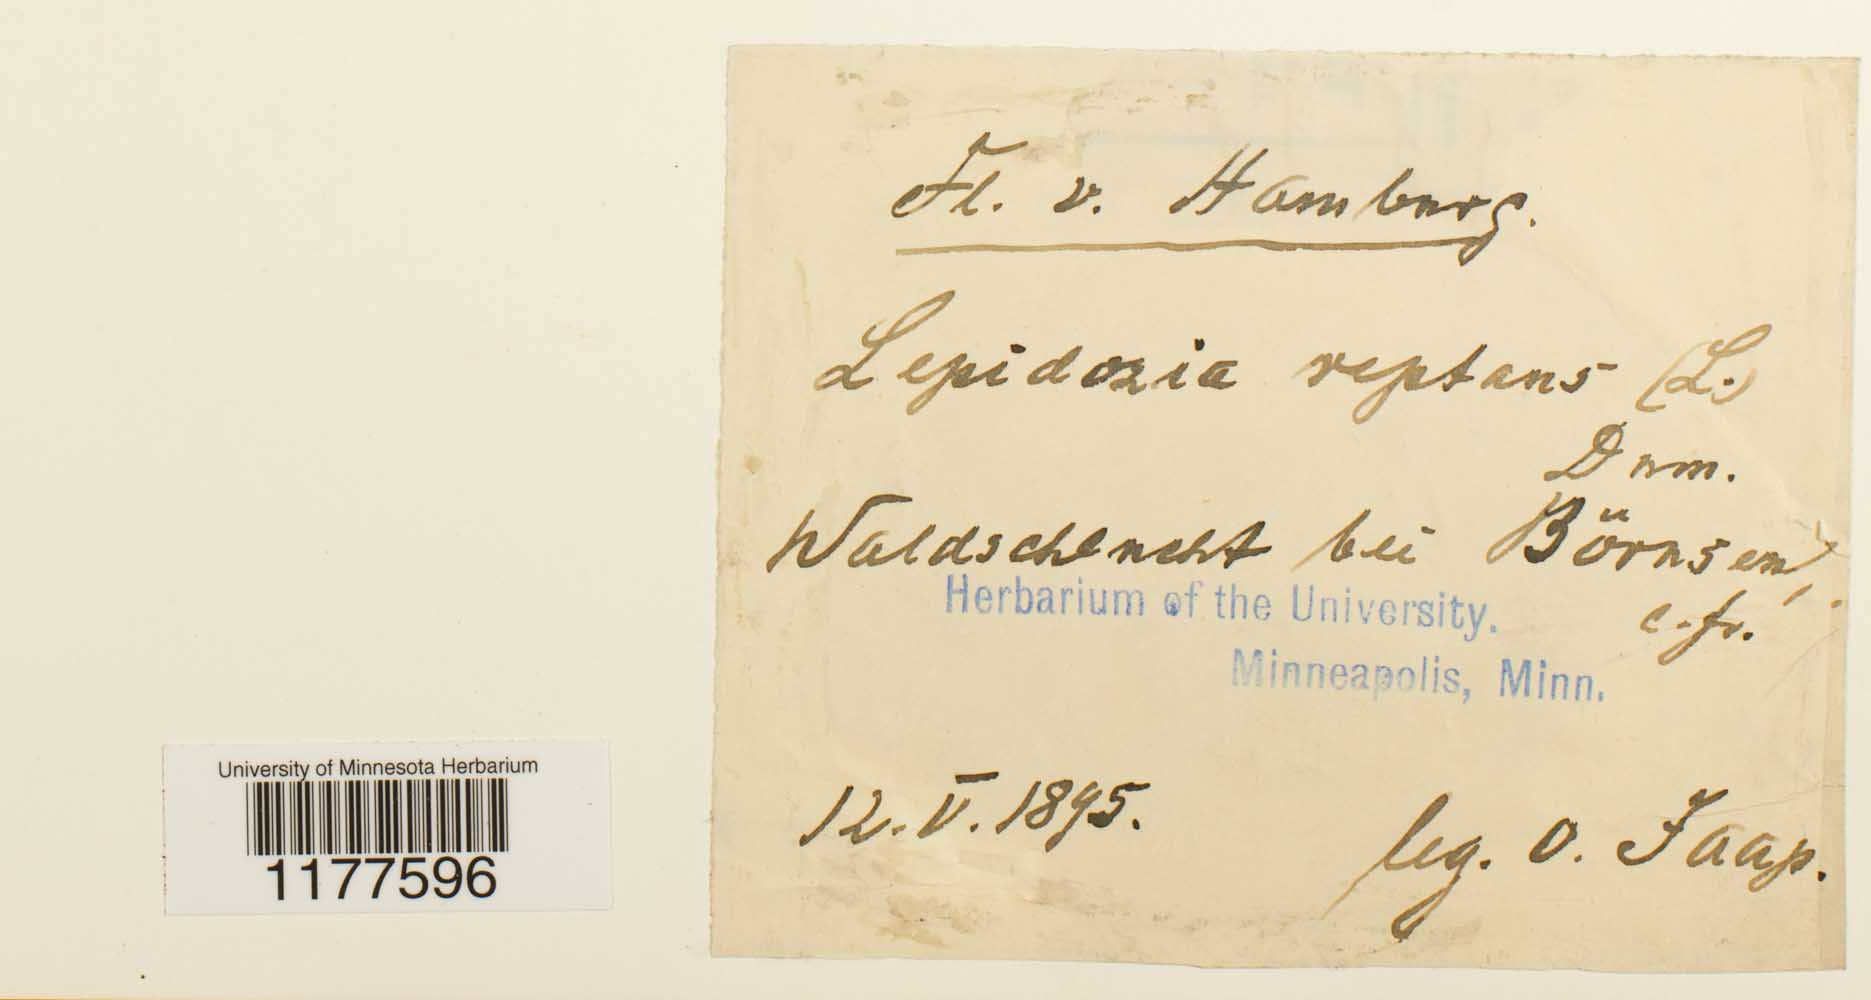 Fl. v. Hamburg.
Lepidozia reptans (L.)
Dum.
Waldschlucht bei Börnsen,
c. fr.
Herbarium of the University.
Minneapolis, Minn.
12. V. 1895.
leg. O. Jaap.
University of Minnesota Herbarium
1177596